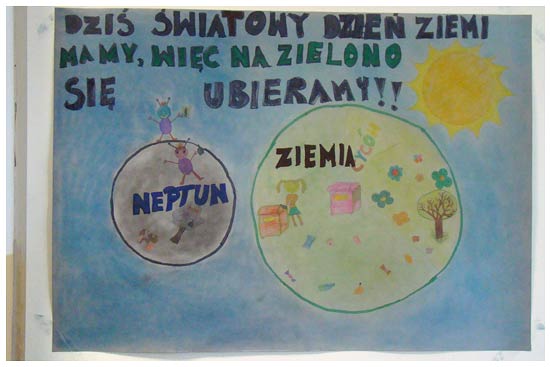 DZIŚ ŚWIATOWY DZIEŃ ZIEMI
MAMY, WIĘC NA ZIELONO
SIĘ UBIERAMY!!
NEPTUN
ZIEMIA